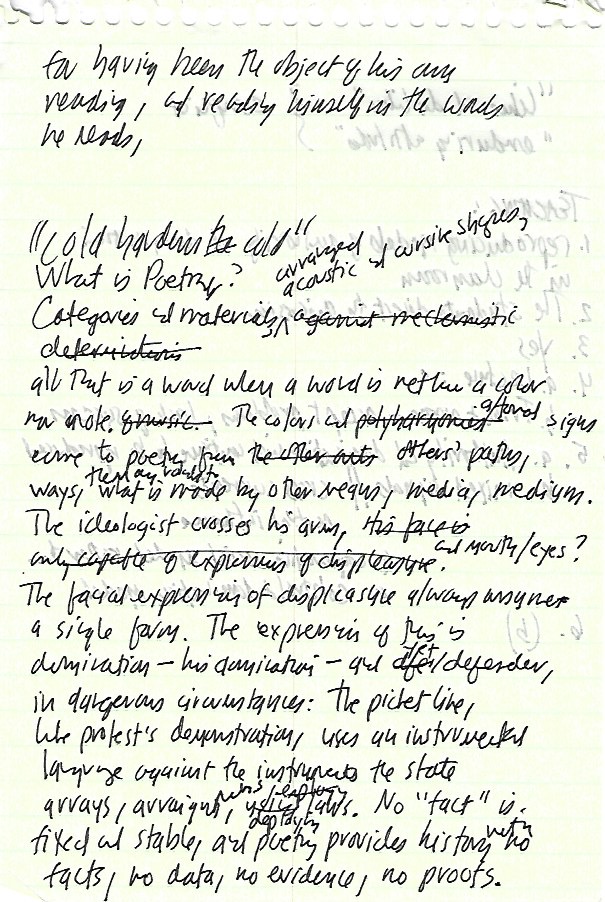 for having been the object of his own
reading, and reading himself in the words
he reads,
"Cold hardens the cold"
What is Poetry? arranged acoustic and cursive shapes,
Categories and materials, against mechanistic
determinations
all that is a word when a word is neither a color
nor note. The colors and polyharmonies atonal signs
come to poetry from the other arts others' paths,
ways, what is made by other means, media, medium.
The ideologist crosses his arms, his face is
only capable of expressions of displeasure. and mouth/eyes?
The facial expression of displeasure always assumes
a single form. The expression of this is
domination – his domination – and /defender,
in dangerous circumstances: the picket line,
like protest's demonstration, uses an instrumented
language against the instruments the state
arrays, arraigns, deploying laws. No "fact" is
fixed and stable, and poetry provides history with no
facts, no data, no evidence, no proofs.